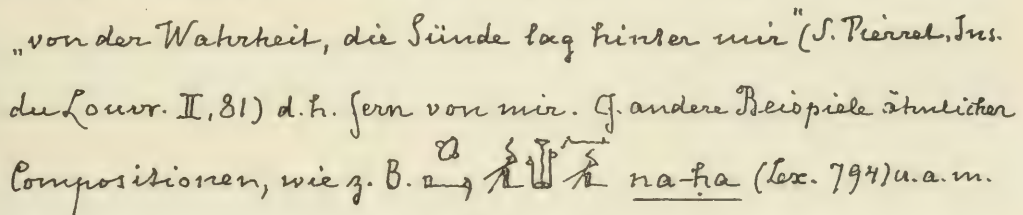 „von der Wahrheit, die Sünde lag hinter mir" (S. Pierret, Ins.
du Louvr. II, 81) d. h. fern von mir. Cf. andere Beispiele ähnlicher
Compositionen, wie z. B. na-ḥa (Lex. 794) u. a. m.